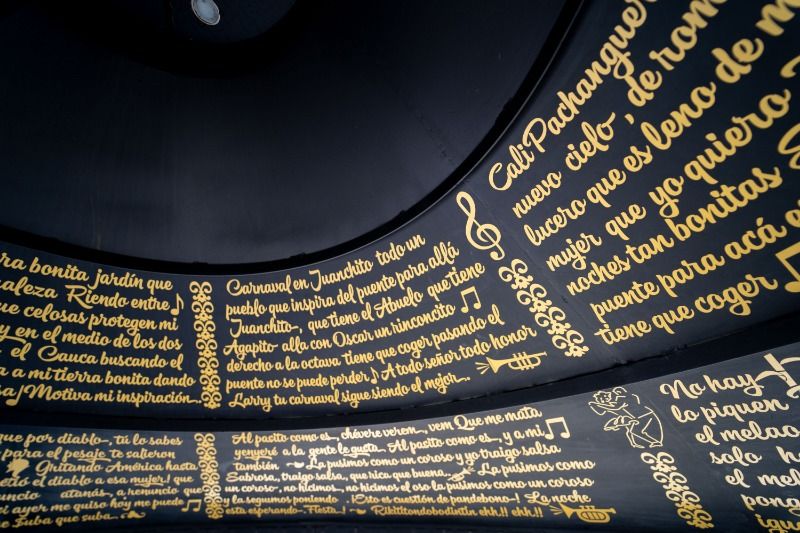 ra bonita jardín que
aleza Riendo entre
ue celosas protegen mi
y en el medio de los dos
el Cauca buscando el
a mi tierra bonita dando
sa/Motiva mi inspiración..
Carnaval en Juanchito todo un
pueblo que inspira del puente para allá
Juanchito, que tiene el Abuelo que tiene
Agapito allá con Oscar un rinconcito
derecho a la octava, tiene que coger pasando el
puente no se puede perder A todo señor todo honor
Larry tu carnaval sigue siendo el mejor..
Cali Pachanguer
nuevo cielo, de rom
lucero que es leno de m
mujer que yo quiero
noches tan bonitas
puente para acá e
tiene que coger
que por diablo, tú lo sabes
para el pesaje te salieron
Gritando América hasta
metió el diablo a esa mujer! que
nuncio atanás, a renuncio que
i ayer me quiso hoy me puede
Zuba que suba..
Al pacito como es, chévere verem, vem Que me mata
yenyeré a la gente le gusta.. Al pacito como es, y a mi
también La pusimos como un coroso y yo traigo salsa
Sabrosa, traigo salsa, que rica que buena. La pusimos como
un coroso, no hicimos, no hicimos el oso la pusimos como un coroso
y la seguimos poniendo ¡Esto es cuestión de pandebono! La noche
esta esperando.. Fiesta..! Rikititondobodintin ehh.!! ehh.!!
No hay
lo piquen
el melao
solo h
el melao
pong
igua
el